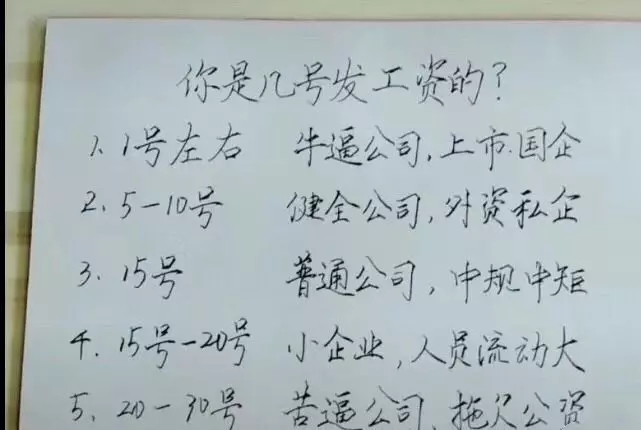 你是几号发工资的?
1、1号左右 牛逼公司,上市.国企
2、5-10号 健全公司,外资私企
3、15号 普通公司,中规中矩
4、15号-20号 小企业,人员流动大
5、20-30号 苦逼公司,拖欠公资